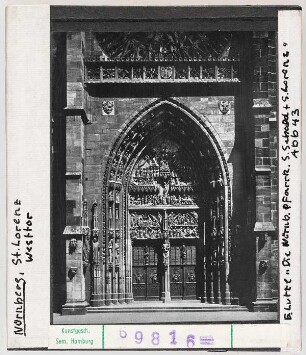 Nürnberg, St. Lorenz
Westtor
"Die Nürnb. Pfarrk. S. Sebald + S. Lorenz"
Abb 43
Kunstgesch.
Sem. Hamburg
69816=